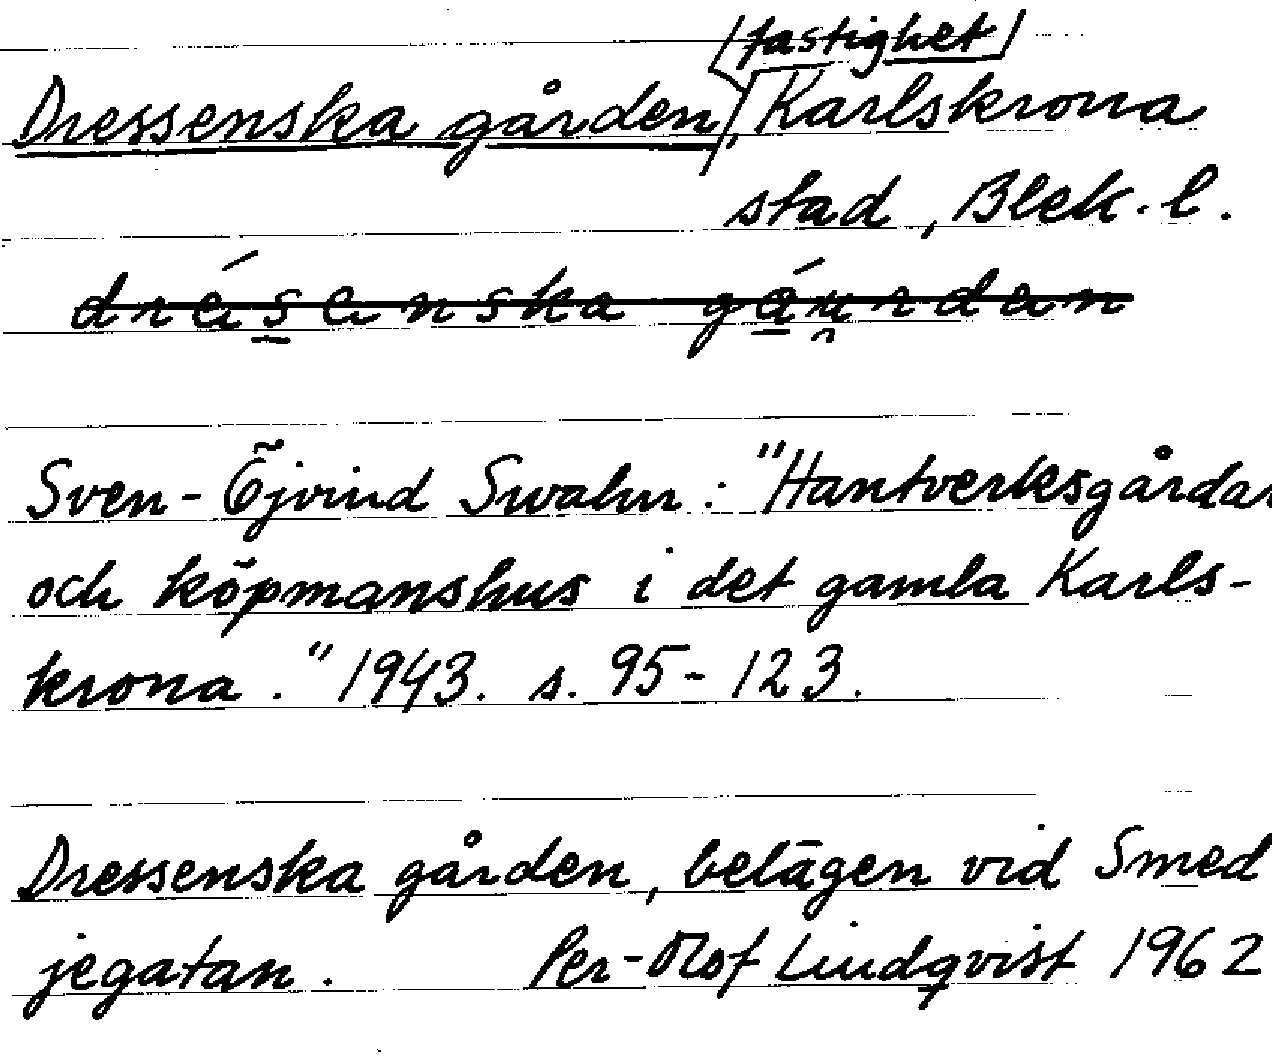 [fastighet]
Dressenska gården, Karlskrona
stad, Blek. l.
drésenska gáurdan
Sven-Öjvind Swahn: "Hantverksgårdar
och köpmanshus i det gamla Karls-
krona." 1943. s. 95-123.
Dressenska gården, belägen vid Smed
jegatan. Per-Olof Lindqvist 1962